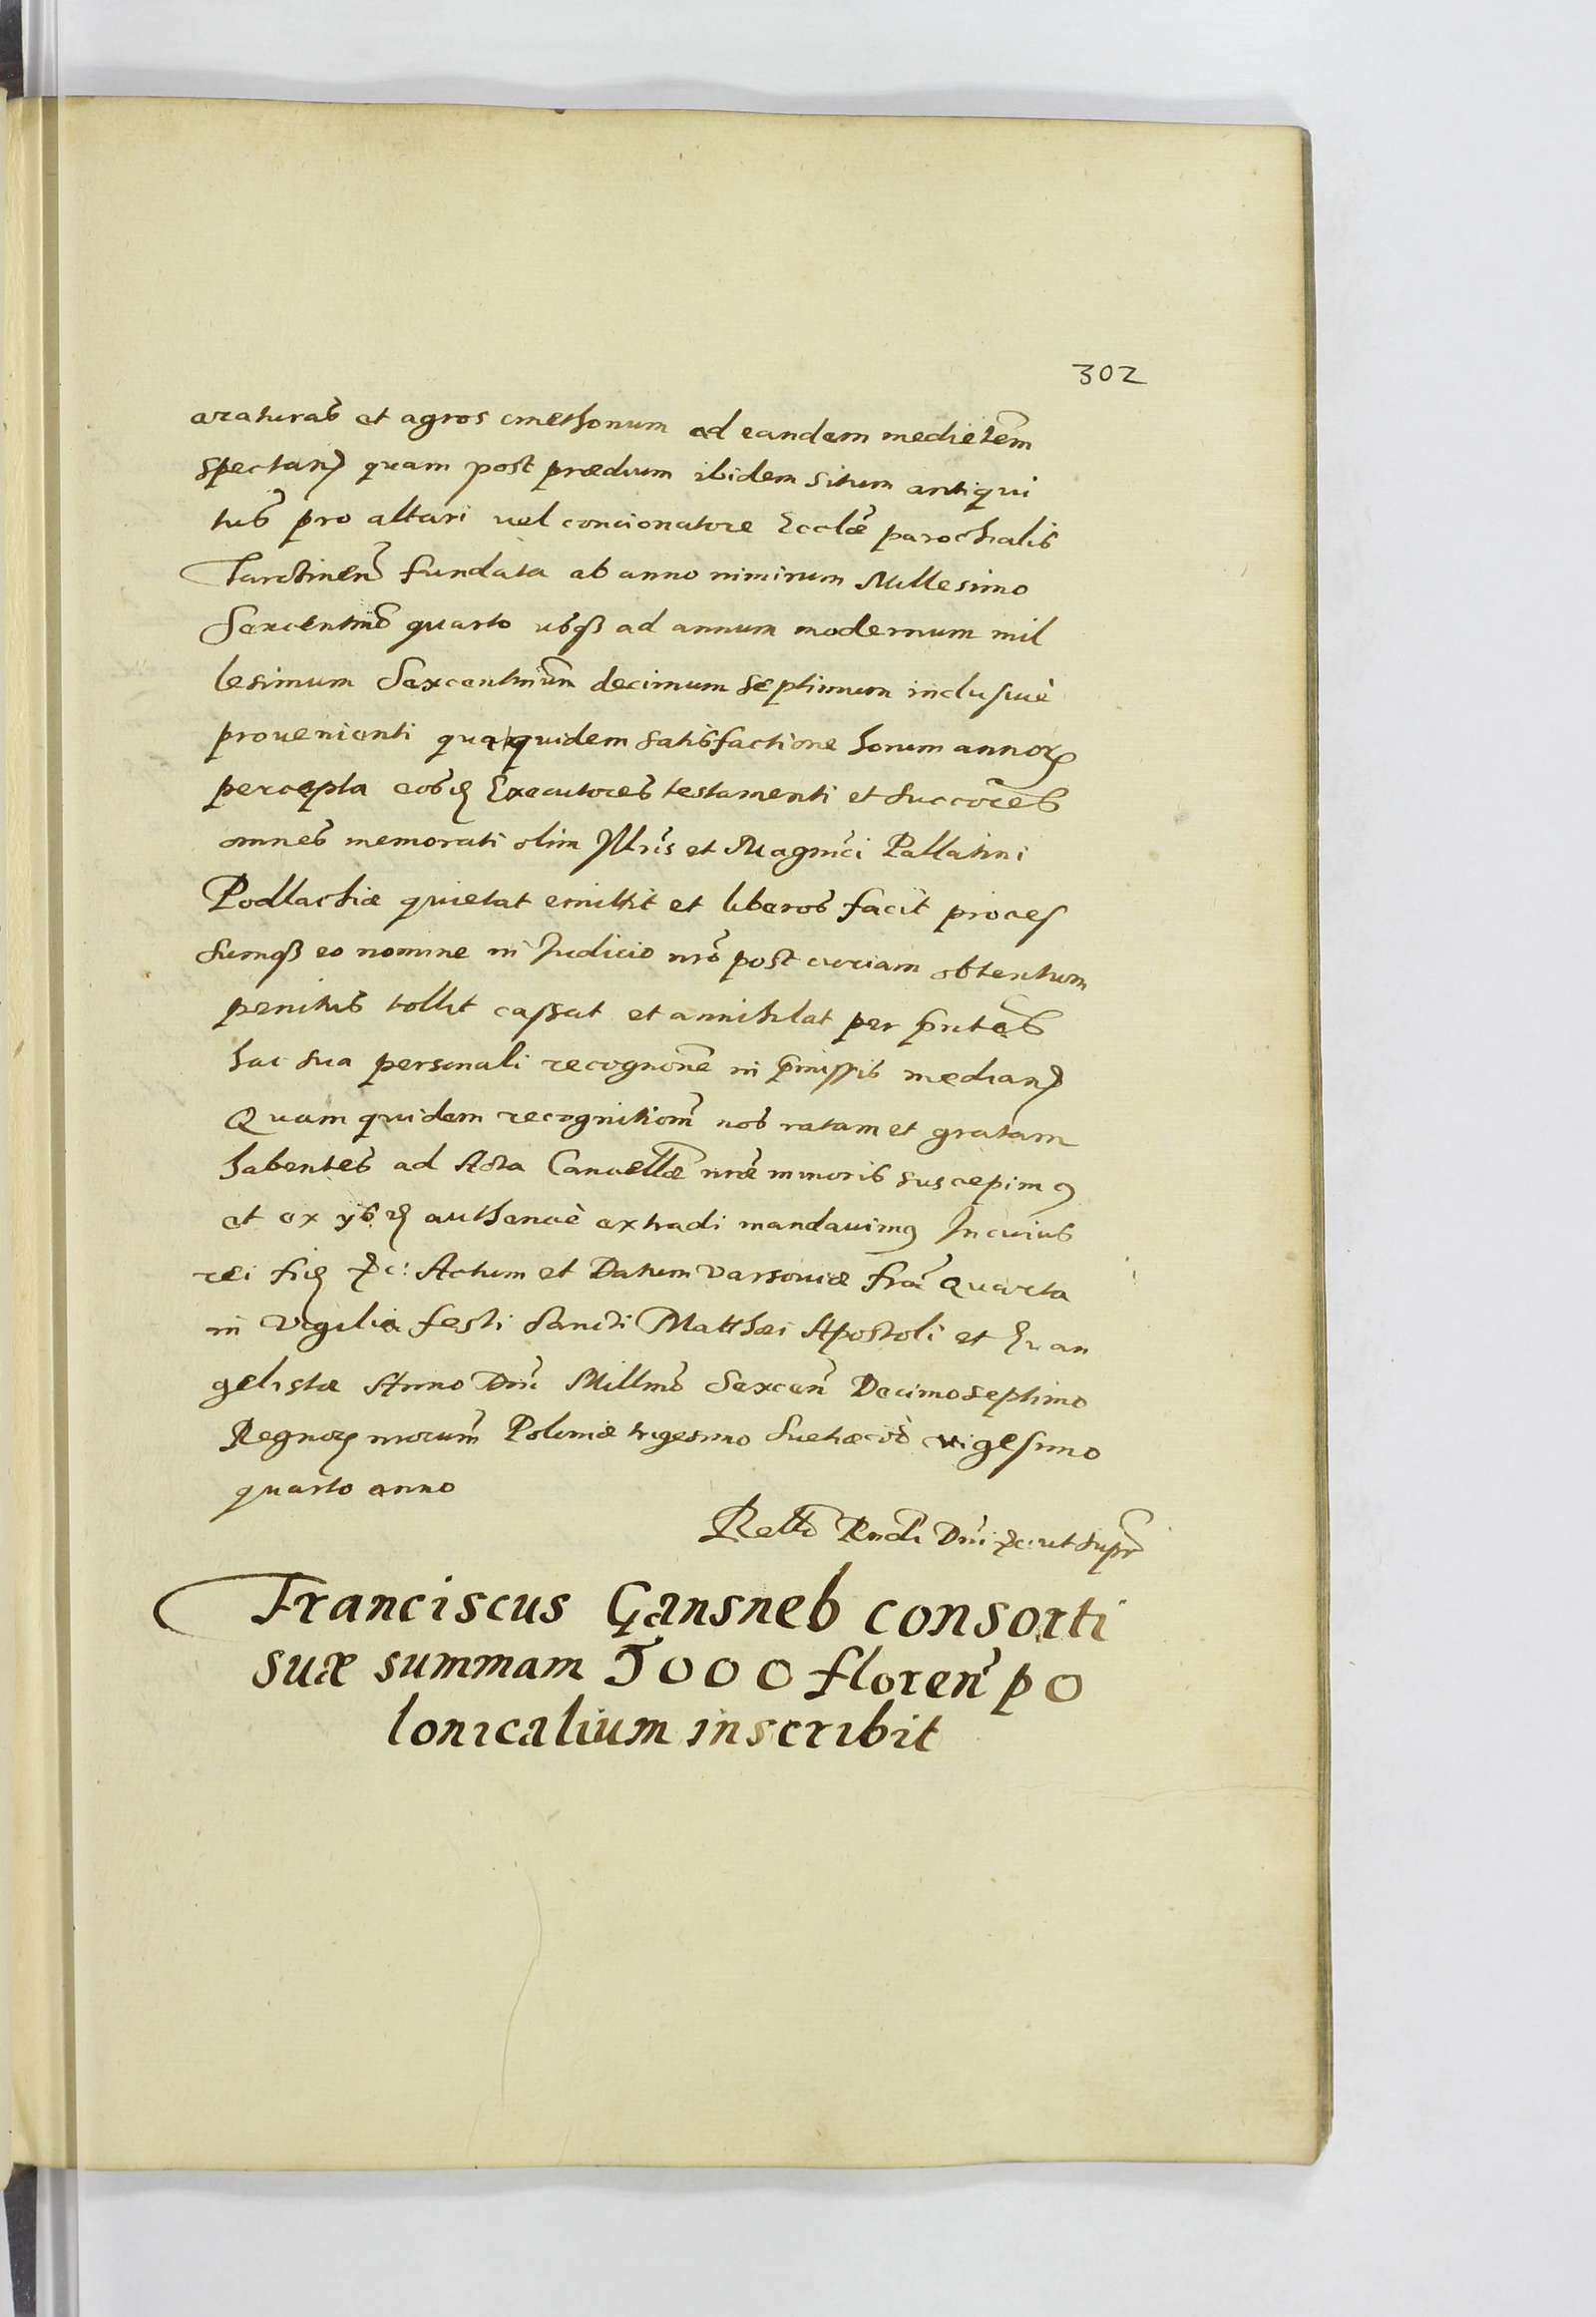 302
araturas et agros cmethonum ad eandem medietẽm
spectan) quam post prædium ibidem situm antiqui
tus pro altari vel concionatore Ecclæ parochialis
Tarchinen fundata ab anno nimirum Millesimo
Sexcentmo quarto usqȝ ad annum modernum mil
lesimum Sexcentmum decimum septimum inclusivè
provenienti qua quidem satisfactione horum annoꝝ
percepta eosdem Executores testamenti et succores
omnes memorati olim Illris et Magnci Pallatini
Podlachiæ quietat emittit et liberos facit proces
sumqȝ eo nomine in Iudicio nro post curiam obtentum
penitus tollit cassat et annihilat per pntes
hac sua personali recognone in pmissis median)
Quam quidem recognitionm nos ratam et gratam
habentes ad Acta Cancellæ nræ minoris suscepimꝰ
et ex ÿsdem authencè extradi mandavimꝰ In cuius
rei fidem &c: Actum et Datum Varsoviæ fra Quarta
in vigilia festi Sancti Matthæi Apostoli et Evan
gelistæ Anno Dni Millmo Sexcen Decimoseptimo
Regnoꝝ nrorum Poloniæ trigesimo Suetiæ vo vigesimo
quarto anno
Rello Rndi Dni &c: ut supra
Franciscus Gansneb consorti
suæ summam 5000 floren po
lonicalium inscribit